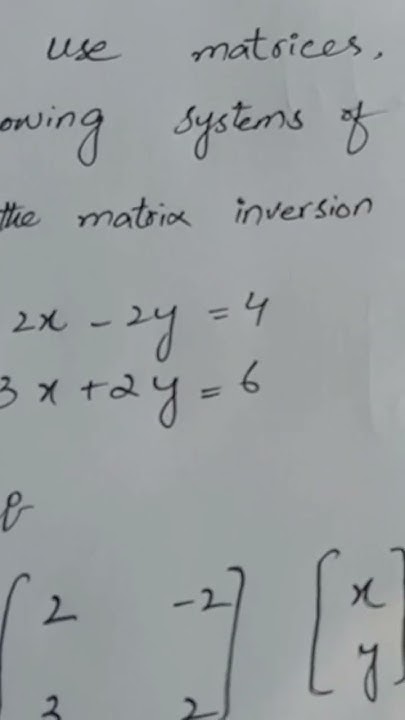 use matrices,
owing systems of
the matrix inversion
2x - 2y = 4
3x + 2y = 6
2 -2 x
y
3 2